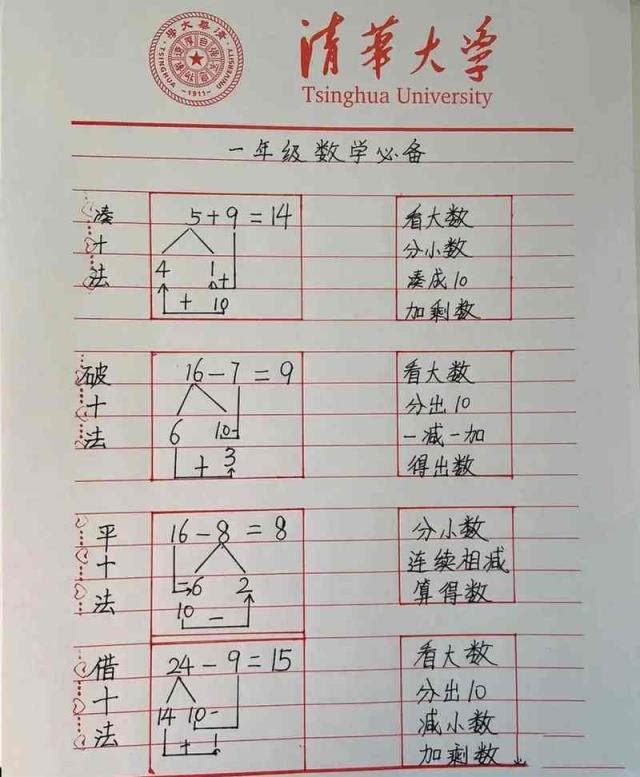 清華大学
Tsinghua University
TSINGHUA UNIVERSITY
-1911-
一年级数学必备
凑十法
5+9=14
4 1 +
+ 10
看大数
分小数
凑成10
加剩数
破十法
16-7=9
6 10-
+ 3
看大数
分出10
一减一加
得出数
平十法
16-8=8
-6 2
10 -
分小数
连续相减
算得数
借十法
24-9=15
14 10-
+ 1
看大数
分出10
减小数
加剩数